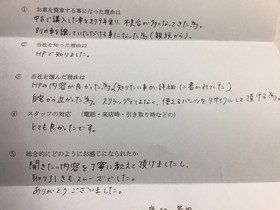 ① お車を廃車する事になった理由は
中古で購入した車を10年乗り、不具合が多くなってきた為。
別の車を譲っていただける事になった為（親族から）。
② 当社を知った理由は
HPで知りました。
③ 当社を選んだ理由は
HPの内容が良かった為。(知りたい事が詳細に書かれていた)
自宅から近かった為。スクラップとはしなく、使えるパーツをリサイクルして頂ける為。
④ スタッフの対応 (電話・来店時・引き取り時などの)
とても良かったです。
⑤ 総合的にどのようにお感じになられたか
聞きたい内容を丁寧に教えて頂けましたし、
取り引きもスムーズでした。
ありがとうございました。